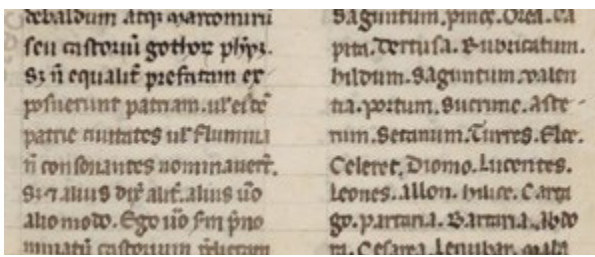 debaldum atq; marcomirū
seu castoriū gothoꝝ phīꝫ.
Sꝫ ñ equalit̄ prefatam ex
posuerunt patriam. ul' eiꝰdē
patrie ciuitates ul' flumina
ñ consonantes nominauerꝭ.
Sꝫ ⁊ alius dix̄ alit̄. alius u̅o
alio modo. Ego u̅o sm̄ p̄no
minatū castorium
Saguntum. pince. Orea. ca
pita. Dertusa. Rubricatum.
hildum. Saguntum. valen
tia. portum. Sucrune. Aste
rum. Setanum. Turres. Elce.
Celeret. Diomo. Lucentes.
Leones. allon. hilice. Carta
go. partaria. Bartaria.
ta. Cesarea. Lenubar. mala